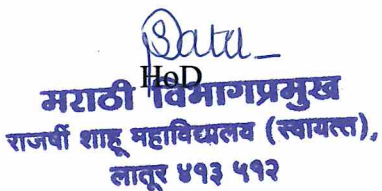 HoD
मराठी विभागप्रमुख
राजर्षी शाहू महाविद्यालय (स्वायत्त),
लातूर ४१३ ५१२